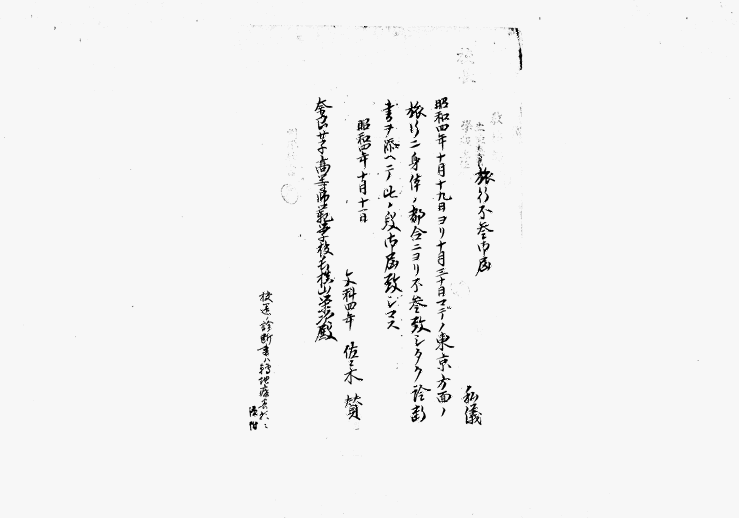 旅行不参御届
私儀
昭和四年十月十九日ヨリ十月三十日マデノ東京方面ノ
旅行ニ身体ノ都合ニヨリ不参致シタク診断
書ヲ添ヘテ此ノ段御届致シマス
昭和四年十月十一日
文科四年 佐々木 贊
奈良女子高等師範学校長横山栄次殿
校医ノ診断書ハ